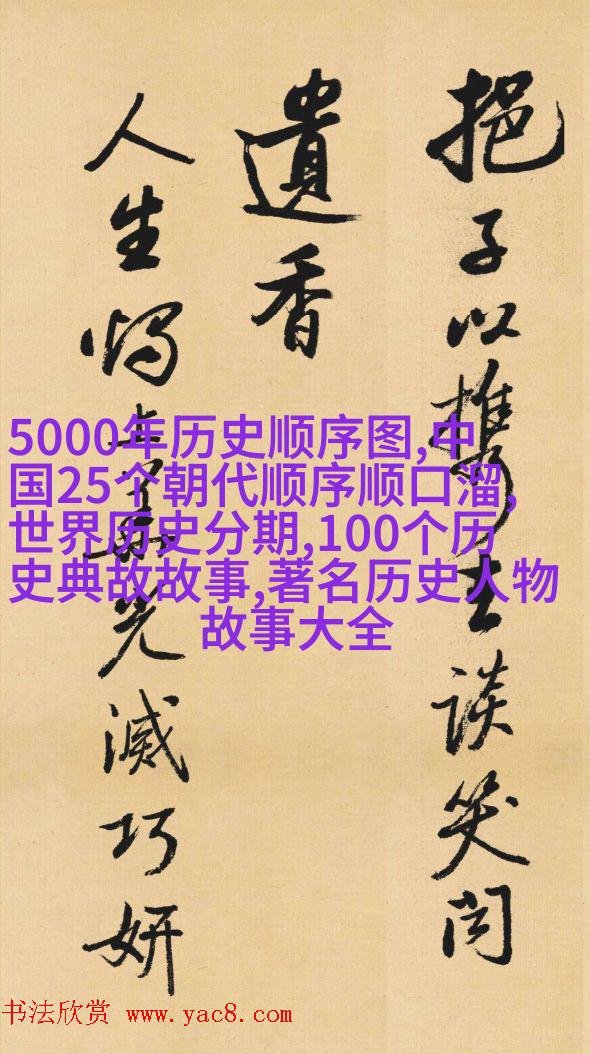 挹子以攜去談笑聞
遺香
人生燭上華光滅巧妍
5000年历史顺序图,中
国25个朝代顺序顺口溜,
世界历史分期,100个历
史典故故事,著名历史人物
故事大全
书法欣赏 www.yac8.com